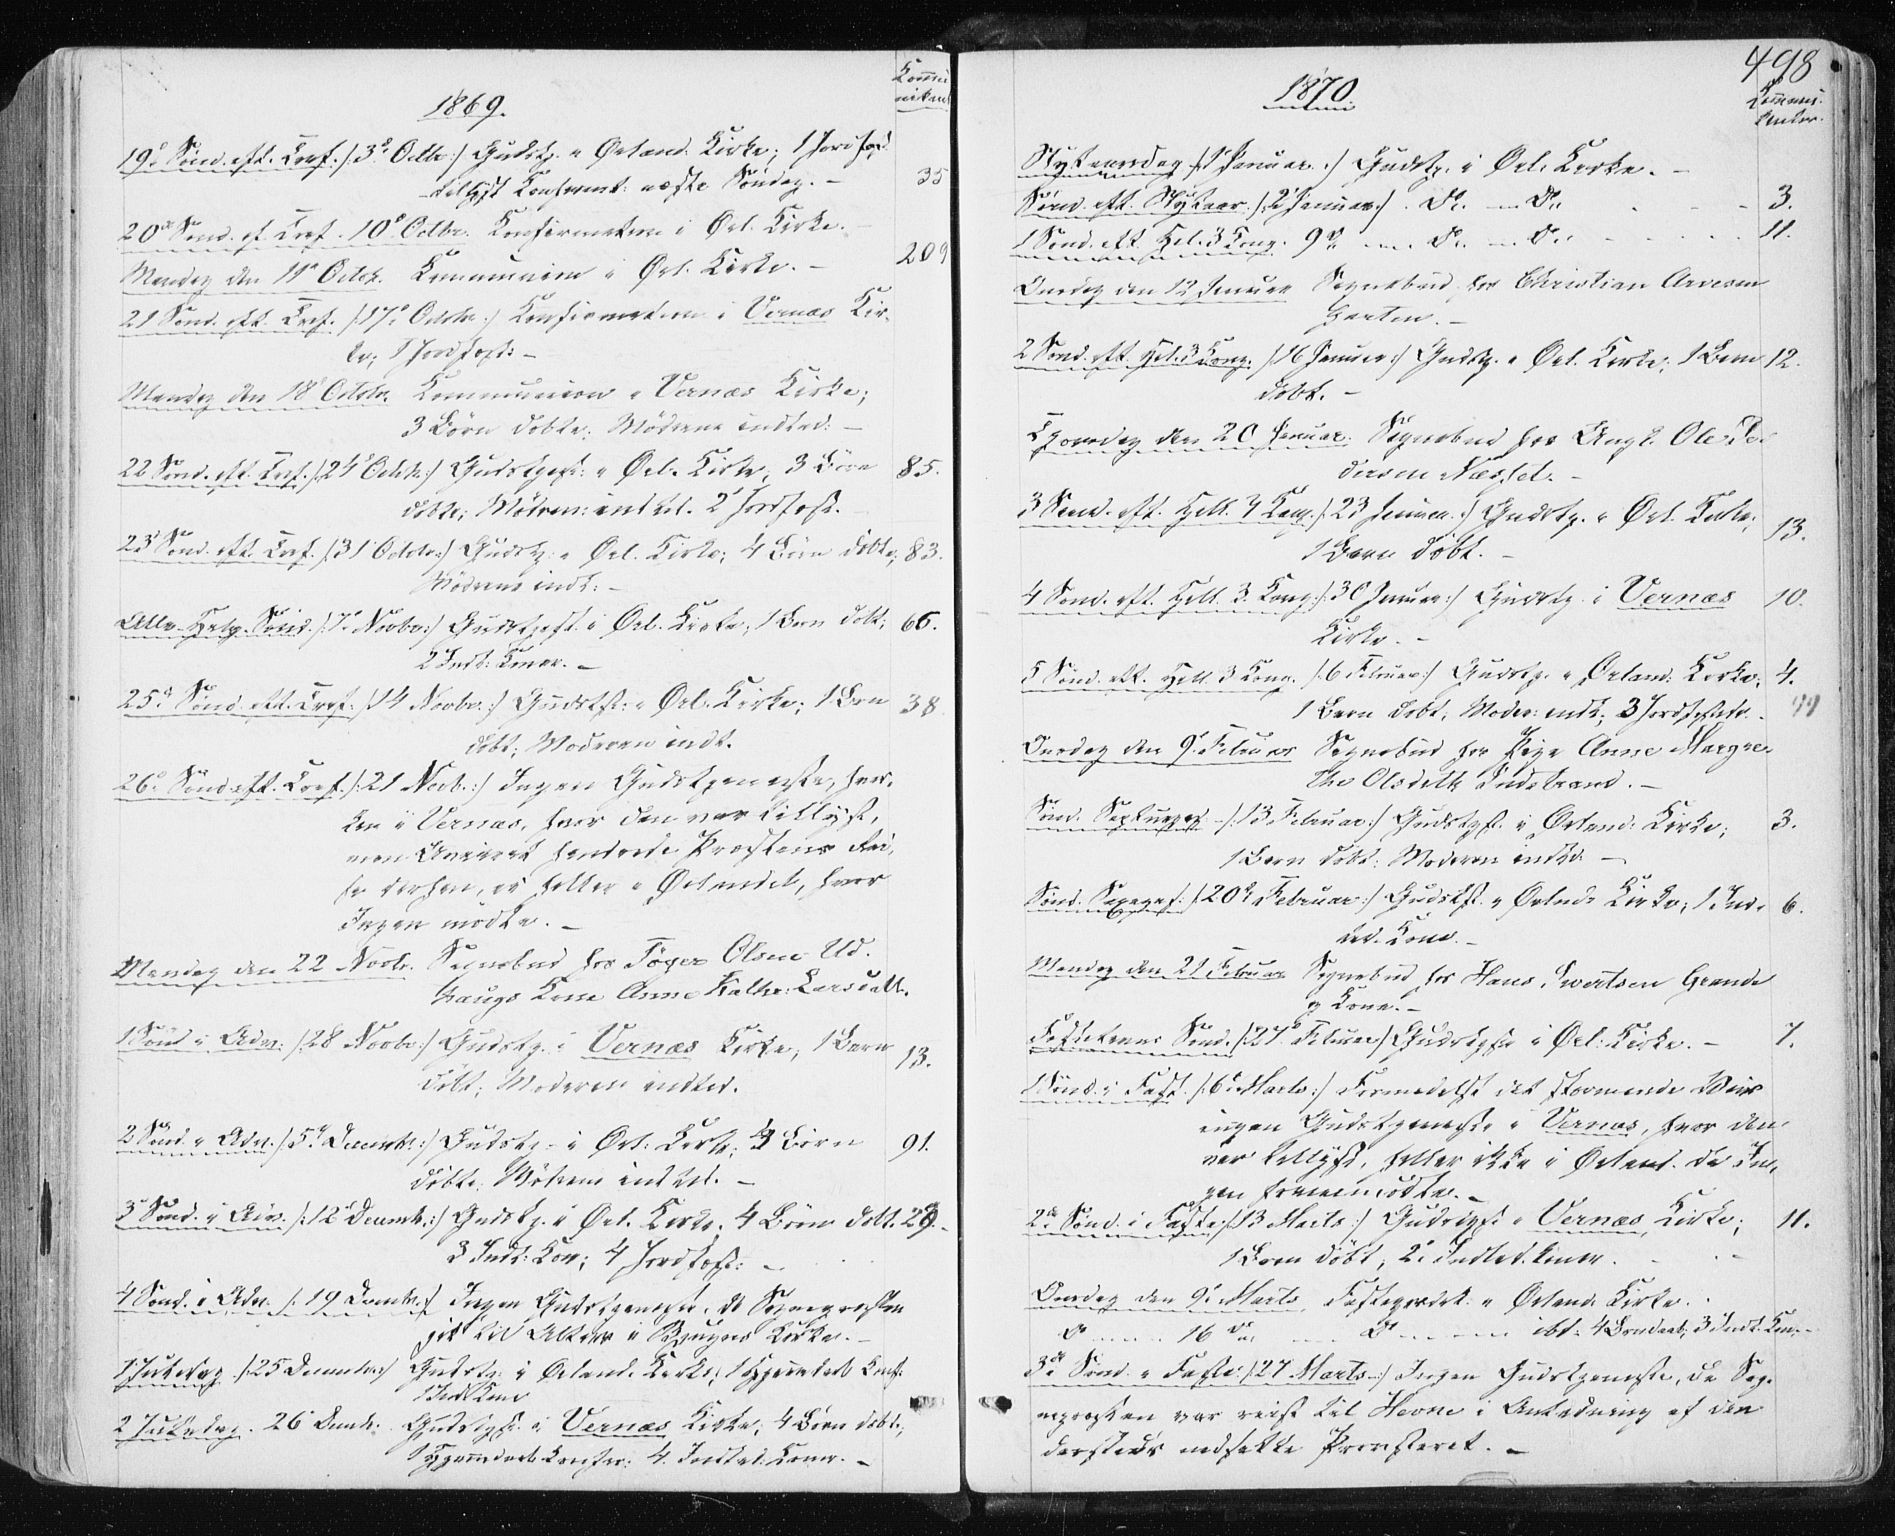 1869.
Kommu-
nikant
19de Sönd. eft. Tref. /: 3de Octbr:/ Gudstj. i Ørland Kirke; 1 Jordfæst.
tillyst Confirmat: næste Söndag. — 35
20de Sönd. ef. Tref. 10de Octbr. Konfirmation i Örl. Kirke. —
Mandag den 11te Octob. Kommunion i Ørl. Kirke. — 209
21 Sönd. eft. Tref. /: 17de Octobr:/ Konfirmation i Vernæs Kir-
ke; 1 Jordfæst: —
Mandag den 18 Octobr. Kommunion i Vernæs Kirke;
3 Börn döbte; Mödrene indled: —
22 Sönd. eft. Tref. /: 24 Octobr:/ Gudstjenst: i Örl. Kirke, 3 Börn 85.
döbte; Mödrene indled. 2 Jordfæst.
23 Sönd. eft. Tref. /: 31 Octobr:/ Gudstj: i Örl. Kirke; 4 Börn döbte; 83.
Mödrene indl: —
Alle Helg. Sönd. /: 7de Novbr:/ Gudstjenst. i Örl. Kirke, 1 Barn döbt; 66.
2 Indl: Koner. —
25de Sönd. eft. Tref. /: 14 Novbr:/ Gudstjst: i Örl. Kirke; 1 Barn 38.
döbt; Moderen indl.
26de Sönd. eft. Tref. /: 21 Novb.:/ Ingen Gudstjeneste, hver-
ken i Vernæs, hvor den var tillyst,
men Uveiret hindrede Præstens Rei-
se derhen, ei heller i Örlandet, hvor
Ingen mödte. —
Mandag den 22 Novbr. Sognebud hos Töger Olsen Ud-
haugs Kone Anne Kathr: Larsdatt.
1 Sönd i Adv. /: 28 Novbr:/ Gudstj. i Vernæs Kirke, 1 Barn 13.
döbt; Moderen indled.
2 Sönd. i Adv. /: 5te Decembr:/ Gudstj. i Örl: Kirke; 3 Börn 91.
döbte; Mödrene indled. —
3 Sönd. i Adv. /: 12 Decembr:/ Gudstj. i Örl. Kirke, 4 Börn döbt. 29.
3 Indl: Kon; 4 Jordfæst: —
4 Sönd. i Adv. /: 19 Decembr:/ Ingen Gudstjeneste, da Sognepræsten
gik til Alters i Bjugns Kirke. —
1 Juledag /: 25 Decembr:/ Gudstj: i Örland. Kirke; 1 Hjemmedöbt Konf:
1 Indl Kone
2 Juledag. 26 Decmbr. Gudstjst. i Vernæs Kirke, 4 Börn döbt,
1 Hjemmedöbt 4. Indled: Koner. —
498
1870
Kommuni-
kanter.
Nytaarsdag /: 1 Januar.:/ Gudstj. i Örl. Kirke. —
Sönd. eft. Nytaar. /: 2 Januar:/ . Do. — Do. 3.
1 Sönd. eft. Hel. 3 Kong. 9 do — Do. — Do. 11.
Onsdag den 12 Januar Sognebud hos Christian Arvesen
Garten. —
2 Sönd. eft. Hel. 3 Kong. /: 16 Januar:/ Gudstj. i Örl. Kirke; 1 Barn 12.
döbt. —
Thorsdag den 20 Januar. Sognebud hos Ungk. Ole Pe-
dersen Næsset. —
3 Sönd. eft. Hell. 3 Kong. /: 23 Januar.:/ Gudstj. i Örl. Kirke; 13.
1 Barn döbt. —
4 Sönd. eft. Hell. 3. Kong. /: 30 Januar:/ Gudstj. i Vernæs 10.
Kirke. —
5 Sönd. eft. Hell. 3 Kong. /: 6 Februar:/ Gudstj. i Örland. Kirke; 4.
1 Barn döbt, Moder: indl; 3 Jordfæstede.
Onsdag den 9. Februar Sognebud hos Pige Anne Margre-
the Olsdatt. Indstrand. —
Sönd. Septuages. /: 13 Februar:/ Gudstjst. i Örland. Kirke; 3.
1 Barn döbt: Moderen indled: —
Sönd. Sexages. /: 20de Februar:/ Gudstjst. i Örlands Kirke, 1 Ind- 6.
led. Kone. —
Mandag den 21 Februar Sognebud hos Hans Iwertsen Grande
og Kone. —
Fastelavns Sönd. /: 27. Februar:/ Gudstjste i Örl: Kirke. — 7.
1 Sönd. i Fast. /: 6te Marts:/ Formedelst det stormende Veir
ingen Gudstjeneste i Vernæs, hvor den
var tillyst, heller ikke i Örland, da In-
gen fremmödte. —
2den Sönd. i Faste /: 13 Marts:/ Gudstjst. i Vernæs Kirke; 11.
1 Barn döbt; 2. Indled. Koner. —
Onsdag den 9. Marts Fastepræd: i Örland Kirke.
Do — 16 do — Do — ibt: 4 Barndaab; 3 Indl. Kon. —
3de Sönd. i Faste: /: 27 Marts:/ Ingen Gudstjeneste, da Sog-
nepræsten var reist til Hevne i Anledning af den
dersteds nedsatte Provsteret. —